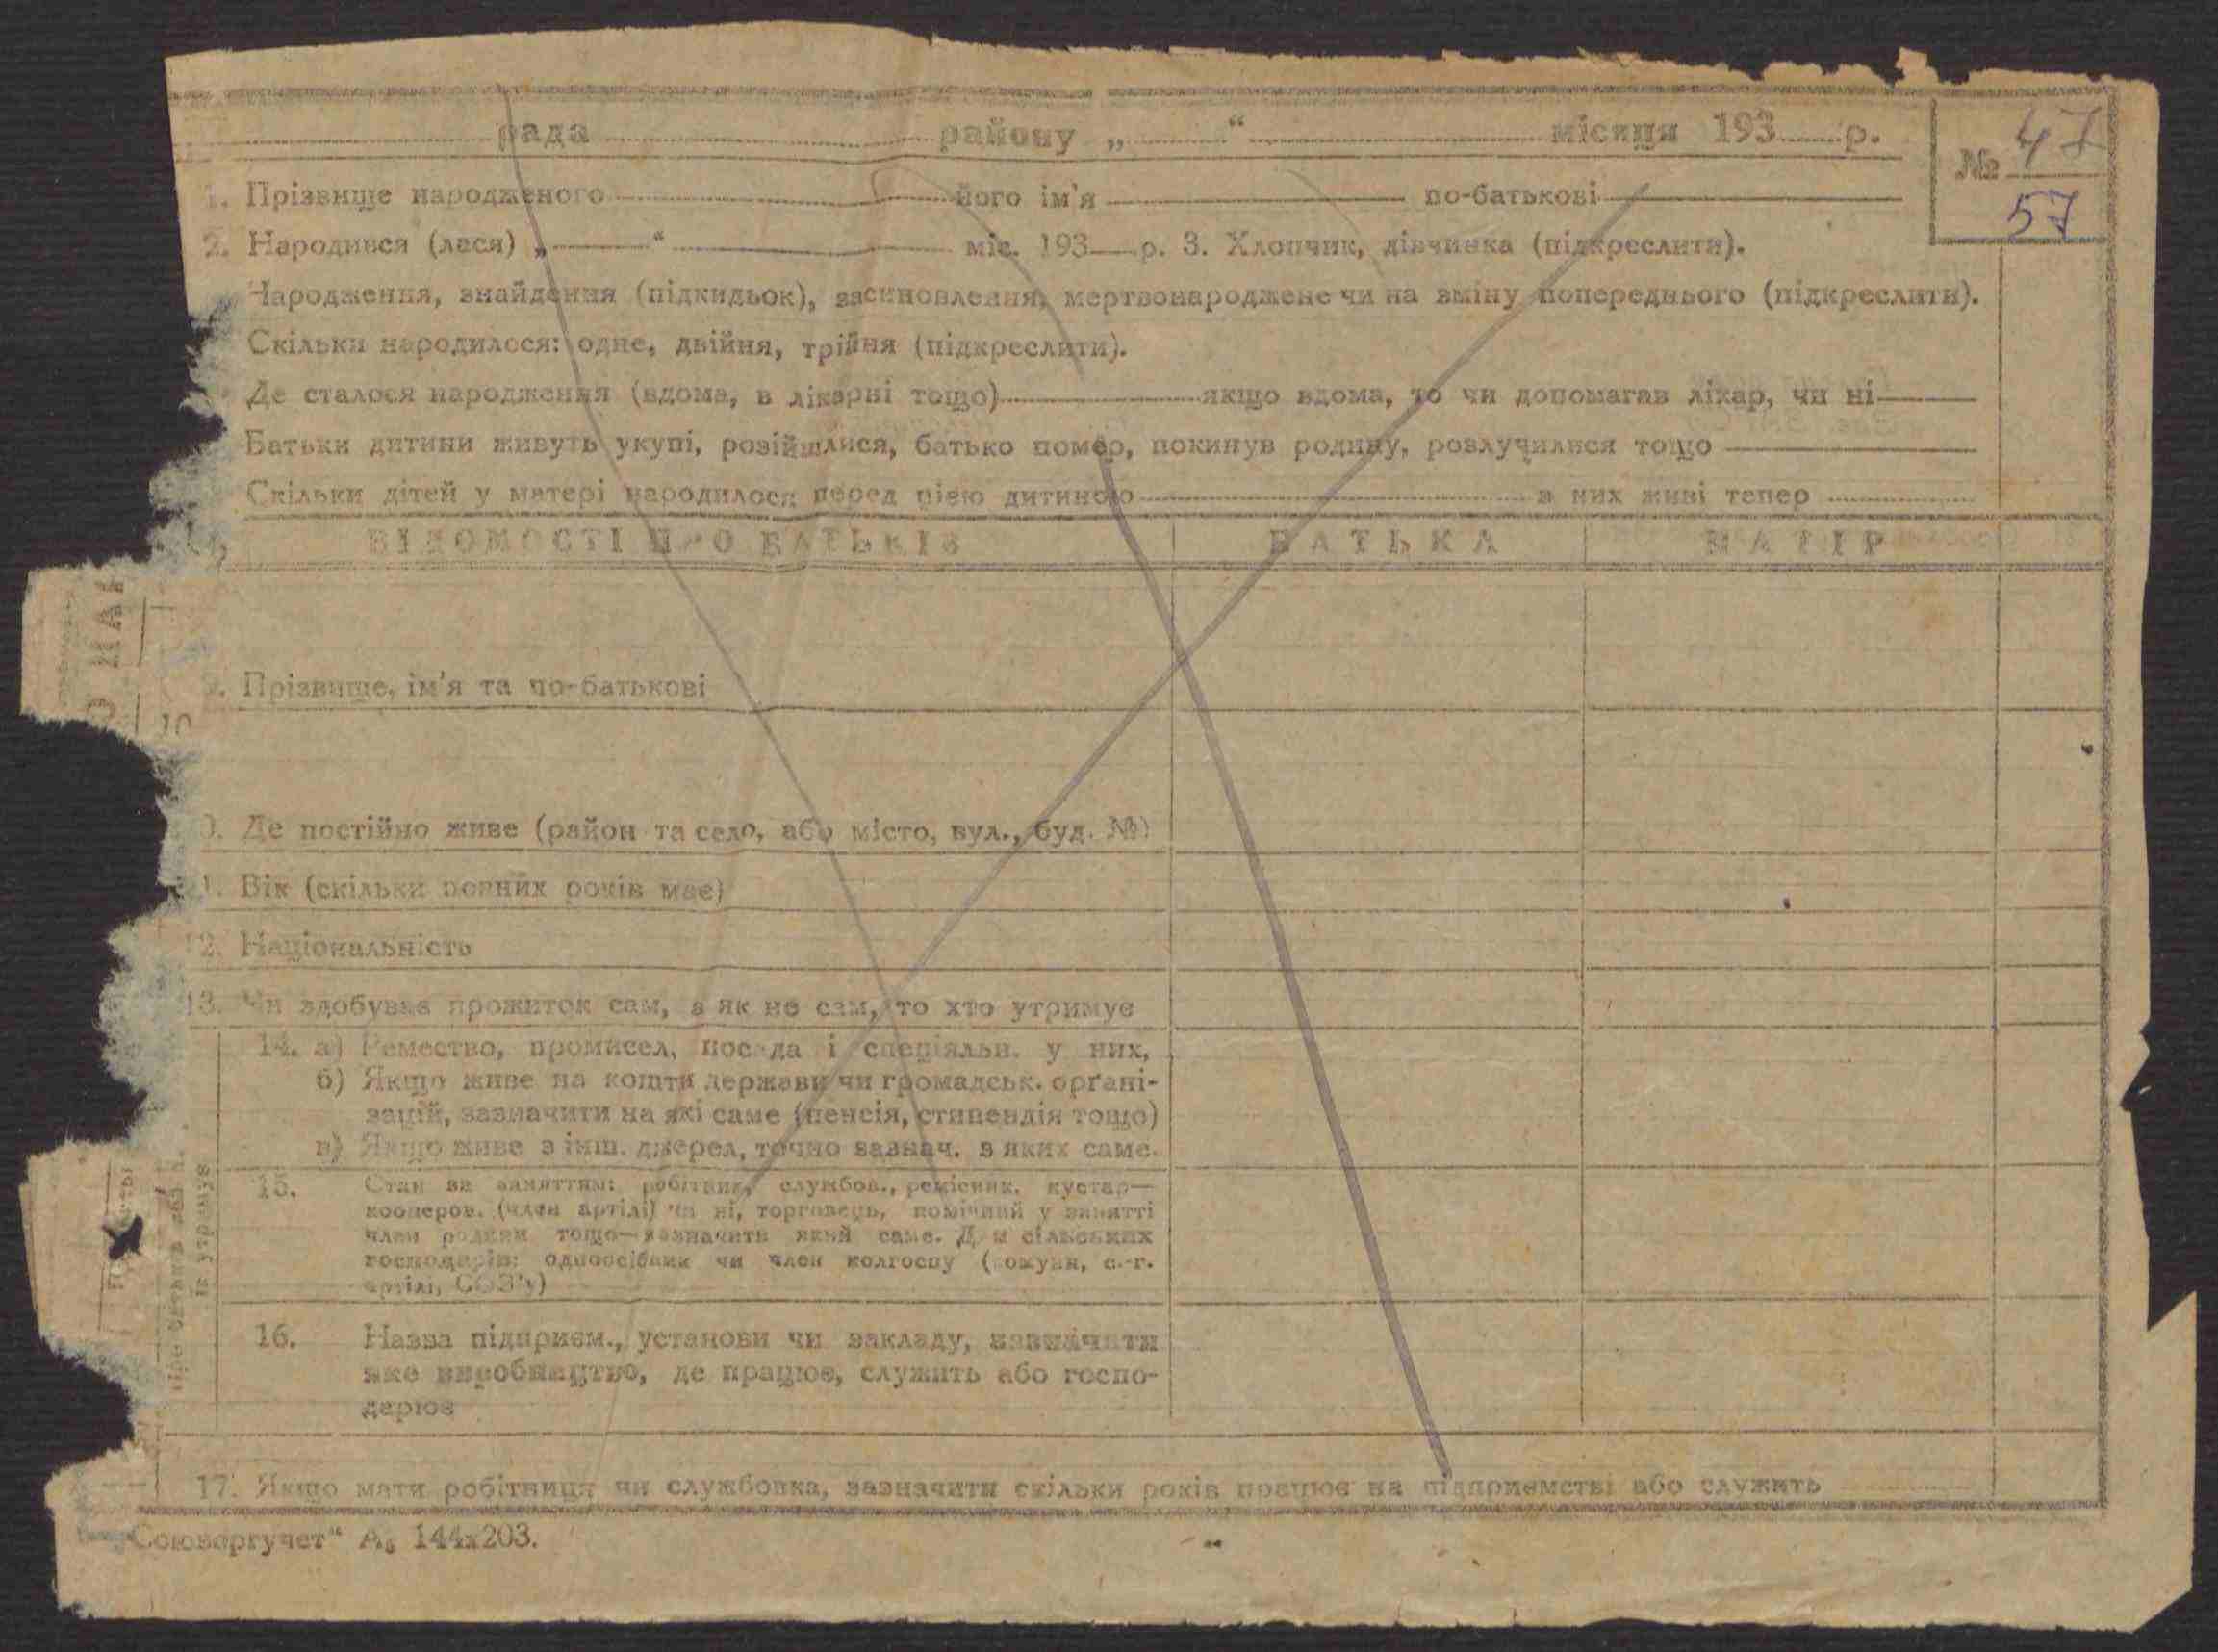 рада району „ “ місяця 193 р.
№ 47
57
1. Прізвище народженого його ім'я по-батькові
2. Народився (лася) „ “ міс. 193 р. 3. Хлопчик, дівчинка (підкреслити).
Народження, знайдення (підкидьок), засиновлення, мертвонароджене чи на зміну попереднього (підкреслити).
Скільки народилося: одне, двійня, трійня (підкреслити).
Де сталося народження (вдома, в лікарні тощо) якщо вдома, то чи допомагав лікар, чи ні
Батьки дитини живуть укупі, розійшлися, батько помер, покинув родину, розлучилися тощо
Скільки дітей у матері народилося перед цією дитиною з них живі тепер
ВІДОМОСТІ ПРО БАТЬКІВ БАТЬКА МАТІР
Прізвище, ім'я та по-батькові
10
0. Де постійно живе (район та село, або місто, вул., буд. №)
1. Вік (скільки повних років має)
12. Національність
13. Чи здобуває прожиток сам, а як не сам, то хто утримує
14. а) Ремество, промисел, посада і спеціяльн. у них,
б) Якщо живе на кошти держави чи громадськ. орґані-
зацій, зазначити на які саме (пенсія, стипендія тощо)
в) Якщо живе з інш. джерел, точно зазнач. з яких саме.
15. Стан за заняттям: робітник, службов., ремісник, кустар—
кооперов. (член артілі) чи ні, торговець, помічний у занятті
член родини тощо—зазначити який саме. Для сільських
господарів: одноосібник чи член колгоспу (комуни, с.-г.
артілі, СОЗ'у)
16. Назва підприєм., установи чи закладу, зазначити
яке виробництво, де працює, служить або госпо-
дарює
їх утримує
17. Якщо мати робітниця чи службовка, зазначити скільки років працює на підприємстві або служить
„Союзоргучет“ А₅ 144х203.